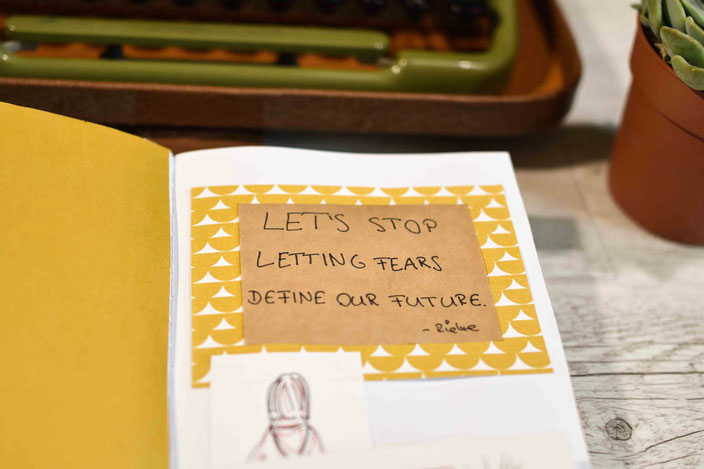 LET'S STOP
LETTING FEARS
DEFINE OUR FUTURE.
- Rieke